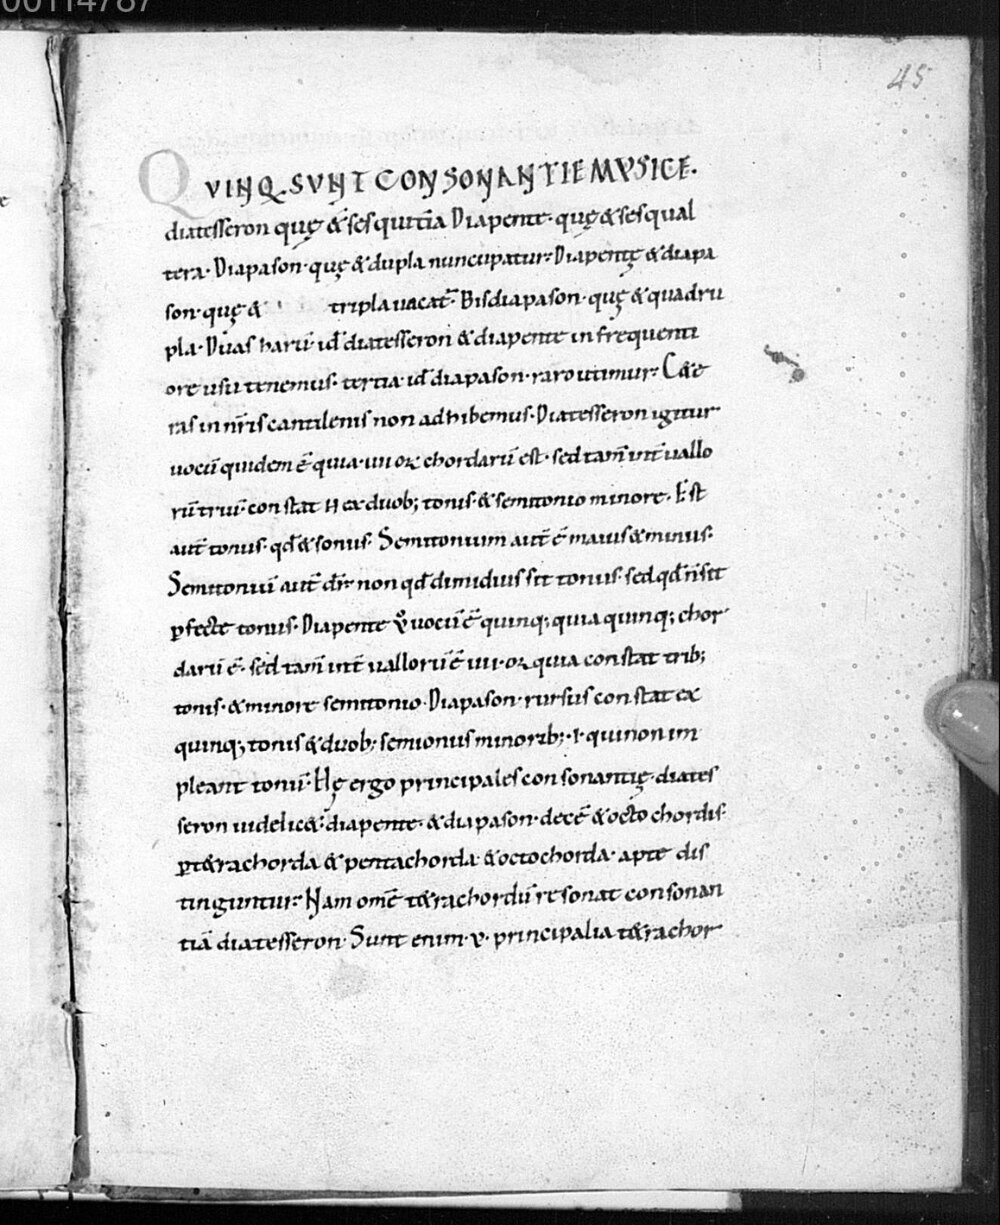 00114787
45
QVINQ. SVNT CONSONANTIE MVSICE.
diatesseron quę & sesquit̄ia Diapente· quę & sesqual
tera· Diapason· quę & dupla nuncupatur· Diapentę & diapa
son· quę & tripla uacat̄· Bisdiapason· quę & quadru
pla· Duas harū· id̄ diatesseron & diapente in frequenti
ore usu tenemus· tertia· id̄ diapason· raro utimur· C&e
ras in nr̄is cantilenis non adhibemus· Diatesseron igitur
uocū quidem ē quia· iiiior chordarū est· sed tam̄ int̄uallo
rū triū· constat H ex duob; tonis· & semitonio minore· Est
aut̄ tonus· qd̄ & sonus· Semitonium aut̄ ē maius & minus·
Semitoniū aut̄ dr̄ non qd̄ dimidius sit tonus· sed qd̄ n̄ sit
ꝑfecte tonus· Diapente v̊ uocū ē quinq; quia quinq; chor
darū ē· sed tam̄ int̄uallorū ē iiiior quia constat trib;
tonis· & minore semitonio· Diapason· rursus constat ex
quinq; tonis & duob; semionus minorib;· ·i· qui non im
pleant tonū· Hę ergo principales consonantię· diates
seron uidelic&· diapente· & diapason· decē & octo chordis·
ꝑ t&rachorda & pentachorda· & octochorda· apte dis
tinguntur· Nam omē t&rachordū resonat consonan
tiā diatesseron· Sunt enim· v· principalia t&rachor